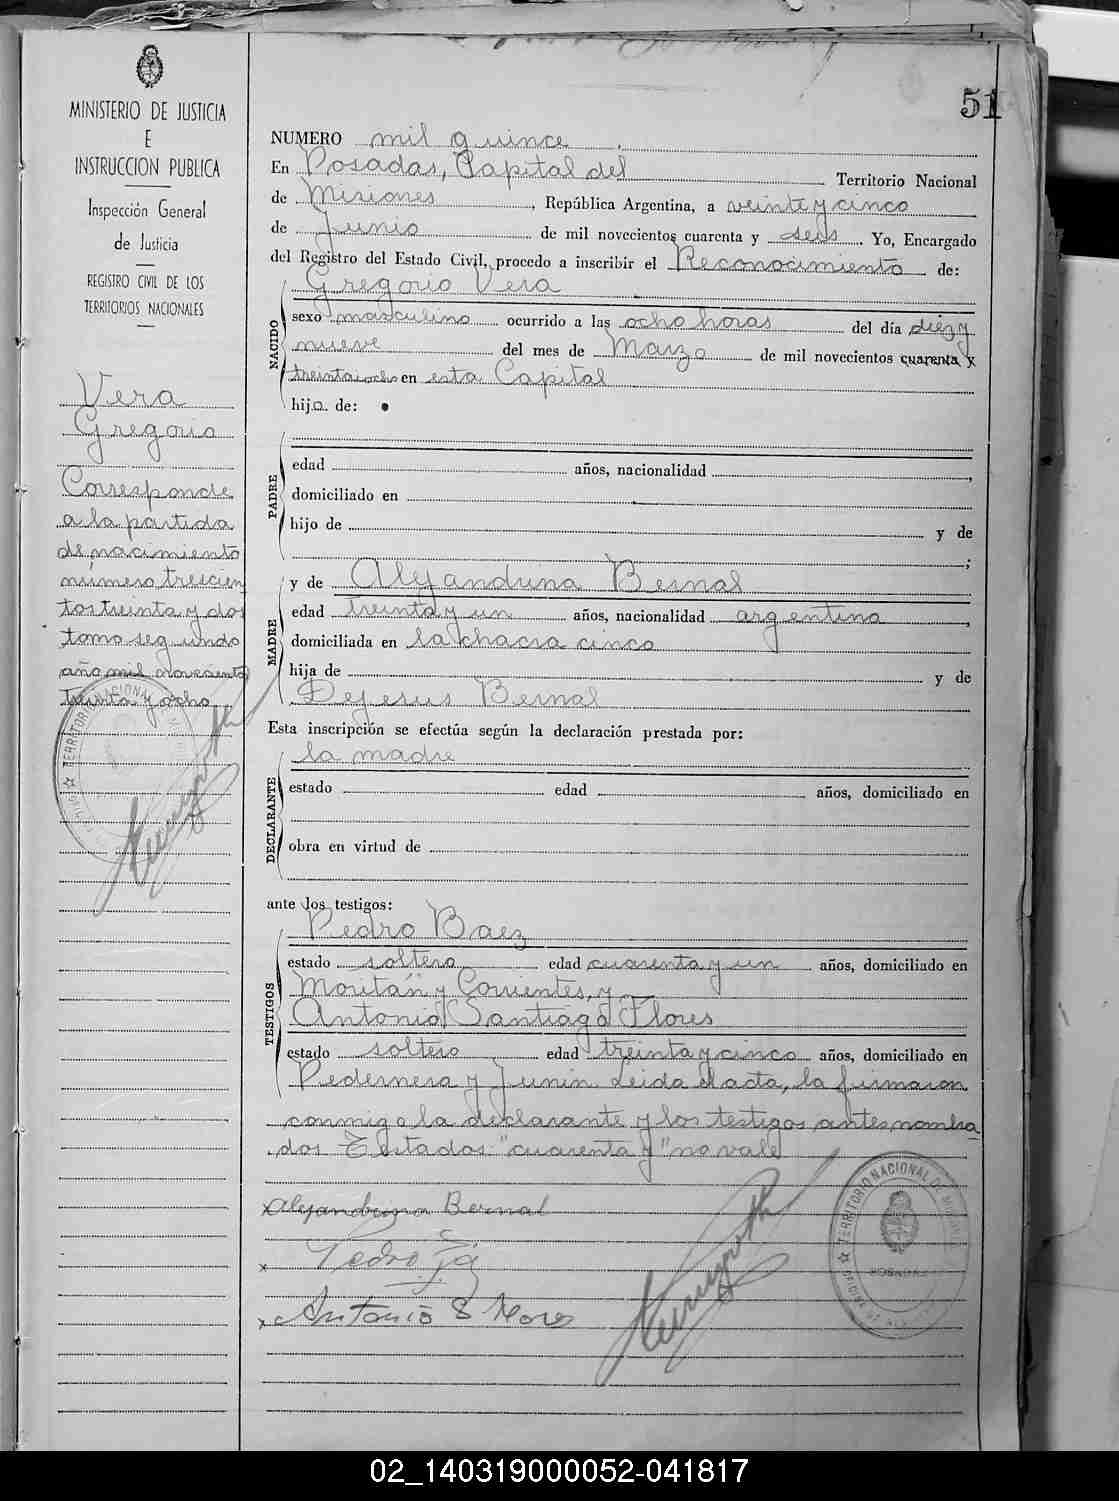 51
MINISTERIO DE JUSTICIA
E
INSTRUCCION PUBLICA
Inspección General
de Justicia
REGISTRO CIVIL DE LOS
TERRITORIOS NACIONALES
Vera
Gregorio
Corresponde
a la partida
de nacimiento
número trescien
tos treinta y dos
tomo segundo
año mil novecientos
treinta y ocho
NUMERO mil quince.
En Posadas, Capital del Territorio Nacional
de Misiones, República Argentina, a veinte y cinco
de Junio de mil novecientos cuarenta y seis. Yo, Encargado
del Registro del Estado Civil, procedo a inscribir el Reconocimiento de:
Gregorio Vera
NACIDO
sexo masculino ocurrido a las ocho horas del día diez y
nueve del mes de Marzo de mil novecientos cuarenta y
treinta ocho en esta Capital
hijo de:
PADRE
edad años, nacionalidad ,
domiciliado en
hijo de y de
;
MADRE
y de Alejandrina Bernal
edad treinta y un años, nacionalidad argentina,
domiciliada en la chacra cinco
hija de y de
Dejesus Bernal
Esta inscripción se efectúa según la declaración prestada por:
la madre
DECLARANTE
estado edad años, domiciliado en
obra en virtud de
ante los testigos:
Pedro Baez
TESTIGOS
estado soltero edad cuarenta y un años, domiciliado en
y Corrientes, y
Antonio Santiago Flores
estado soltero edad treinta y cinco años, domiciliado en
Pedernera y Junin. Leida el acta, la firmaron
conmigo la declarante y los testigos antes nombra
dos Testados "cuarenta y" no vale
Alejandrina Bernal
Pedro
Antonio S Flores
TERRITORIO NACIONAL DE MISIONES
POSADAS
TERRITORIO NACIONAL DE MISIONES
02_140319000052-041817